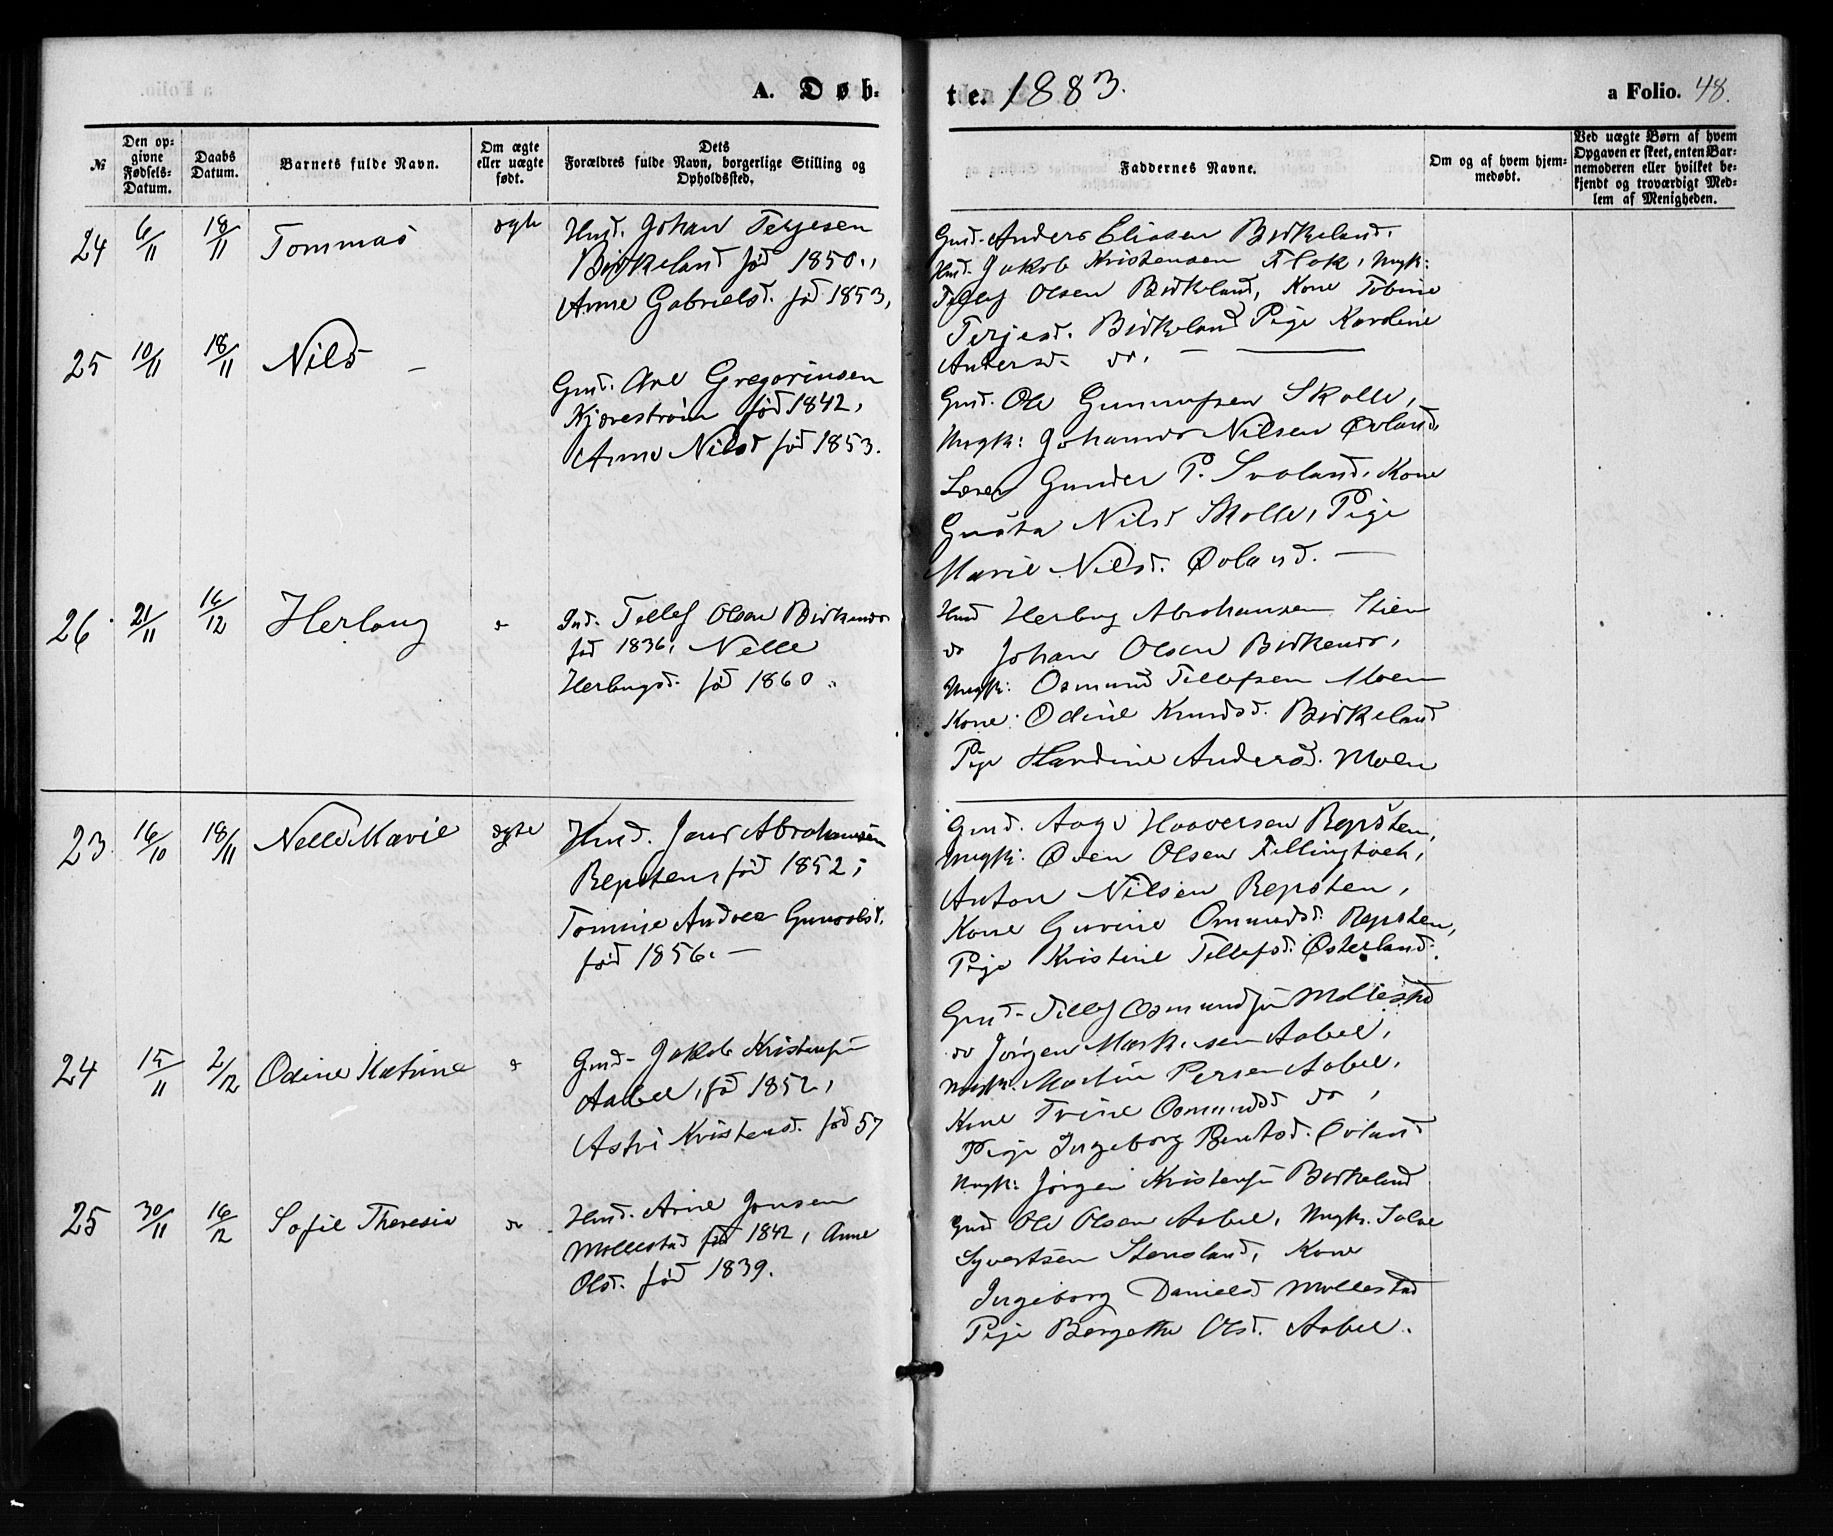 A. Døb-
te. 1883.
a Folio. 48.
№
Den op-
givne
Fødsels-
Datum.
Daabs
Datum.
Barnets fulde Navn.
Om ægte
eller uægte
født.
Dets
Forældres fulde Navn, borgerlige Stilling og
Opholdssted.
Faddernes Navne.
Om og af hvem hjem-
medøbt.
Ved uægte Børn af hvem
Opgaven er skeet, enten Bar-
nemoderen eller hvilket be-
kjendt og troværdigt Med-
lem af Menigheden.
24 6/11 18/11 Tommas ægte
Husd. Johan Terjesen
Birkeland fød 1850.,
Anne Gabrielsd. fød 1853,
Gmd. Anders Eliasen Birkeland,
Husd. Jakob Kristensen Flak, Ungk:
Tellef Olsen Birkeland, Kone Tobine
Terjesd. Birkeland Pige Karoline
Andersd. do. —
25 10/11 18/11 Nils —
Gmd. Are Gregoriusen
Kjærestrøm fød 1842,
Anne Nilsd fød 1853.
Gmd. Ole Gunnufsen Skolle,
Ungk: Johannes Nilsen Øvland,
Lærer Gunder P. Svaland, Kone
Gusta Nilsd Skolle, Pige
Marie Nilsd. Øvland. —
26. 21/11 16/12 Herlaug do
Ind. Tellef Olsen Birkenes
fød 1836, Nelle
Herlugsd. fød 1860.
Husd Herlug Abrahamsen Stien
do Johan Olsen Birkenes,
Ungk: Osmund Tellefsen Moen
Kone Odine Knudsd. Birkeland
Pige Handine Andersd. Moen
23 16/10 18/11 Nelle Marie ægte
Husd. Jens Abrahamsen
Repsten, fød 1852,
Tomine Andrea Gunvalsd.
fød 1856. —
Gmd. Aage Haaversen Repsten,
Ungk: Øven Olsen
Anton Nilsen Repsten,
Kone Gurine Omundsd. Repsten,
Pige Kristine Tellefsd. Østerland.
24 15/11 2/12 Odine Katrine do
Gmd. Jakob Kristensen
Aabel, fød 1852,
Astri Kristensd. fød 57
Gmd. Tellef Osmundsen Mollestad
do Jørgen Aabel,
Ungk. Martin Persen Aabel,
Kone Trine Osmundsd do,
Pige Ingeborg Bentsd. Øvland
25 30/11 16/12 Sofie Theresie do
Husd. Arne Jensen
Mollestad fød 1842, Anne
Olsd. fød 1839.
Ungk: Jørgen Kristensen Birkeland
Gmd Ole Olsen Aabel, Ungk. Salve
Syvertsen Stensland, Kone
Ingeborg Danielsd Mollestad
Pige Bergethe Olsd. Aabel.